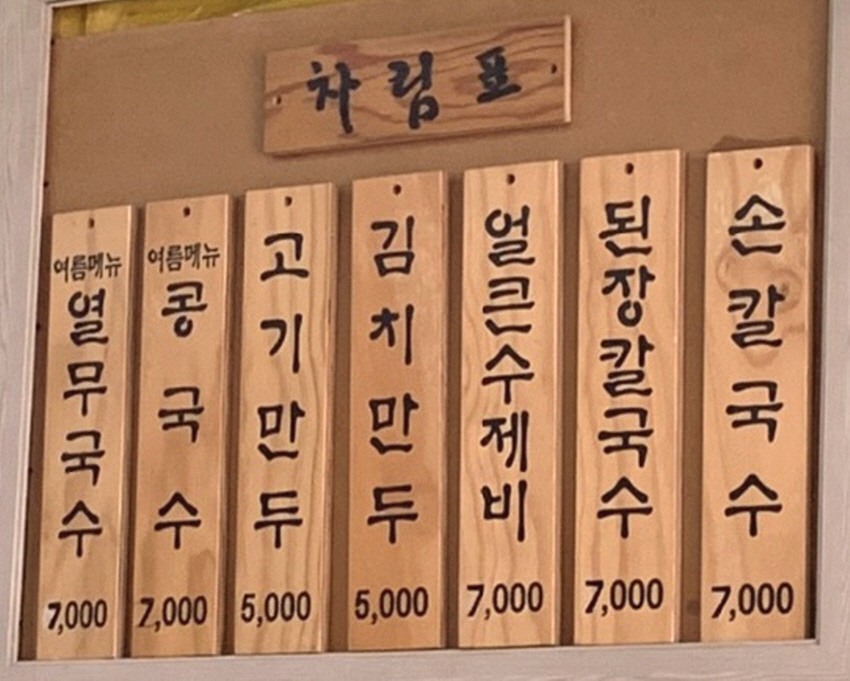 차림표
여름메뉴
열무국수
7,000
여름메뉴
콩국수
7,000
고기만두
5,000
김치만두
5,000
얼큰수제비
7,000
된장칼국수
7,000
손칼국수
7,000